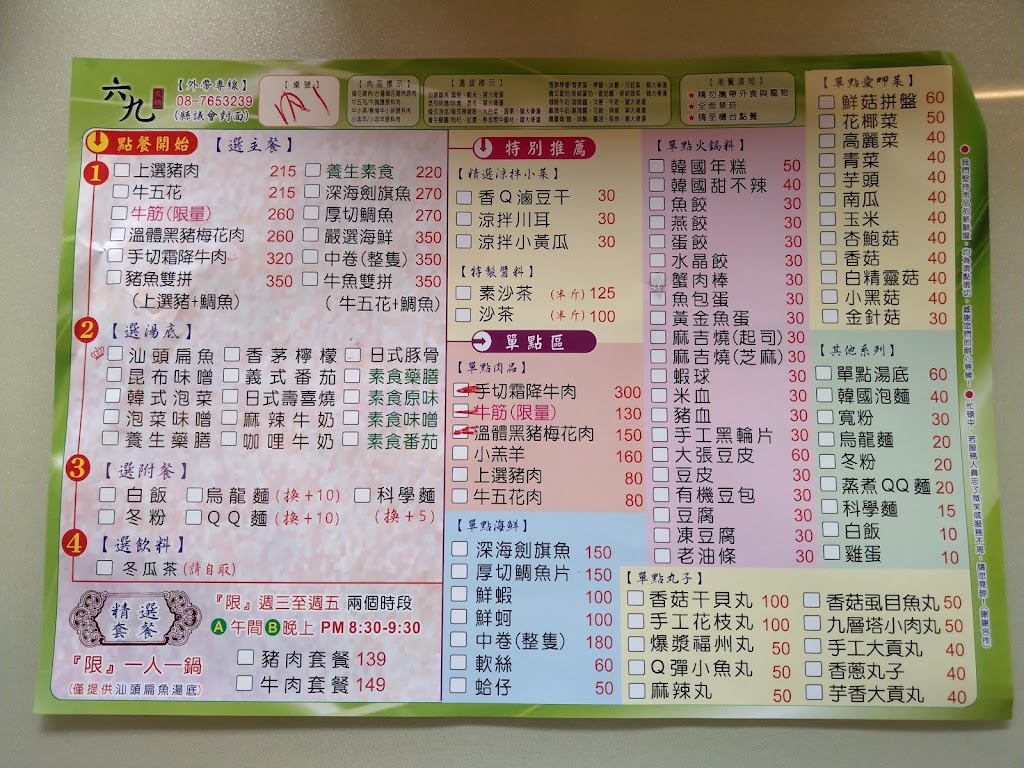 六九
火鍋
【外帶專線】
08-7653239
(縣議會對面)
【桌號】
內1
【肉品標示】
【湯頭標示】
【用餐須知】
★請勿攜帶外食與寵物
★全面禁菸
★請至櫃台點餐
點餐開始
1
【選主餐】
上選豬肉 215
牛五花 215
牛筋(限量) 260
溫體黑豬梅花肉 260
手切霜降牛肉 320
豬魚雙拼 350
(上選豬+鯛魚)
養生素食 220
深海劍旗魚 270
厚切鯛魚 270
嚴選海鮮 350
中卷(整隻) 350
牛魚雙拼 350
(牛五花+鯛魚)
2
【選湯底】
汕頭扁魚 香茅檸檬 日式豚骨
昆布味噌 義式番茄 素食藥膳
韓式泡菜 日式壽喜燒 素食原味
泡菜味噌 麻辣牛奶 素食味噌
養生藥膳 咖哩牛奶 素食番茄
3
【選附餐】
白飯 烏龍麵(換+10) 科學麵
冬粉 QQ麵(換+10) (換+5)
4
【選飲料】
冬瓜茶(請自取)
精選
套餐
『限』週三至週五 兩個時段
A午間B晚上 PM 8:30-9:30
『限』一人一鍋
(僅提供汕頭扁魚湯底)
豬肉套餐 139
牛肉套餐 149
特別推薦
【精選涼拌小菜】
香Q滷豆干 30
涼拌川耳 30
涼拌小黃瓜 30
【特製醬料】
素沙茶 (半斤) 125
沙茶 (半斤) 100
單點區
【單點肉品】
手切霜降牛肉 300
牛筋(限量) 130
溫體黑豬梅花肉 150
小羔羊 160
上選豬肉 80
牛五花肉 80
【單點海鮮】
深海劍旗魚 150
厚切鯛魚片 150
鮮蝦 100
鮮蚵 100
中卷(整隻) 180
軟絲 60
蛤仔 50
【單點火鍋料】
韓國年糕 50
韓國甜不辣 40
魚餃 30
燕餃 30
蛋餃 30
水晶餃 30
蟹肉棒 30
魚包蛋 30
黃金魚蛋 30
麻吉燒(起司) 30
麻吉燒(芝麻) 30
蝦球 30
米血 30
豬血 30
手工黑輪片 30
大張豆皮 60
豆皮 30
有機豆包 30
豆腐 30
凍豆腐 30
老油條 30
【單點丸子】
香菇干貝丸 100
手工花枝丸 100
爆漿福州丸 50
Q彈小魚丸 50
麻辣丸 50
香菇虱目魚丸 50
九層塔小肉丸 50
手工大貢丸 40
香蔥丸子 40
芋香大貢丸 40
【單點愛呷菜】
鮮菇拼盤 60
花椰菜 50
高麗菜 40
青菜 40
芋頭 40
南瓜 40
玉米 40
杏鮑菇 40
香菇 40
白精靈菇 40
小黑菇 40
金針菇 30
【其他系列】
單點湯底 60
韓國泡麵 40
寬粉 30
烏龍麵 20
冬粉 20
蒸煮QQ麵 20
科學麵 15
白飯 10
雞蛋 10